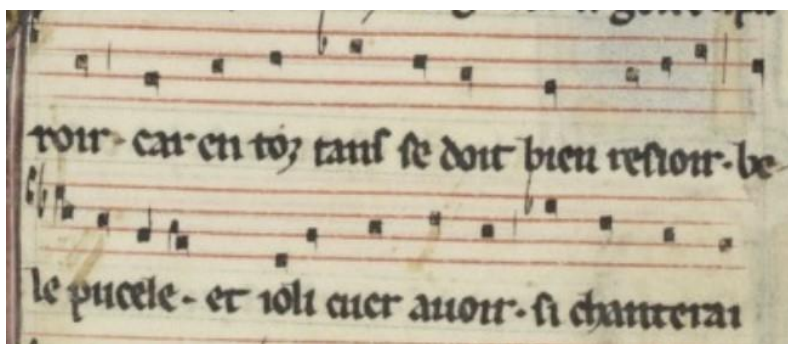 roir · car en toz tans se doit bien resioir · be
le pucele · et ioli cuer auoir · si chanterai